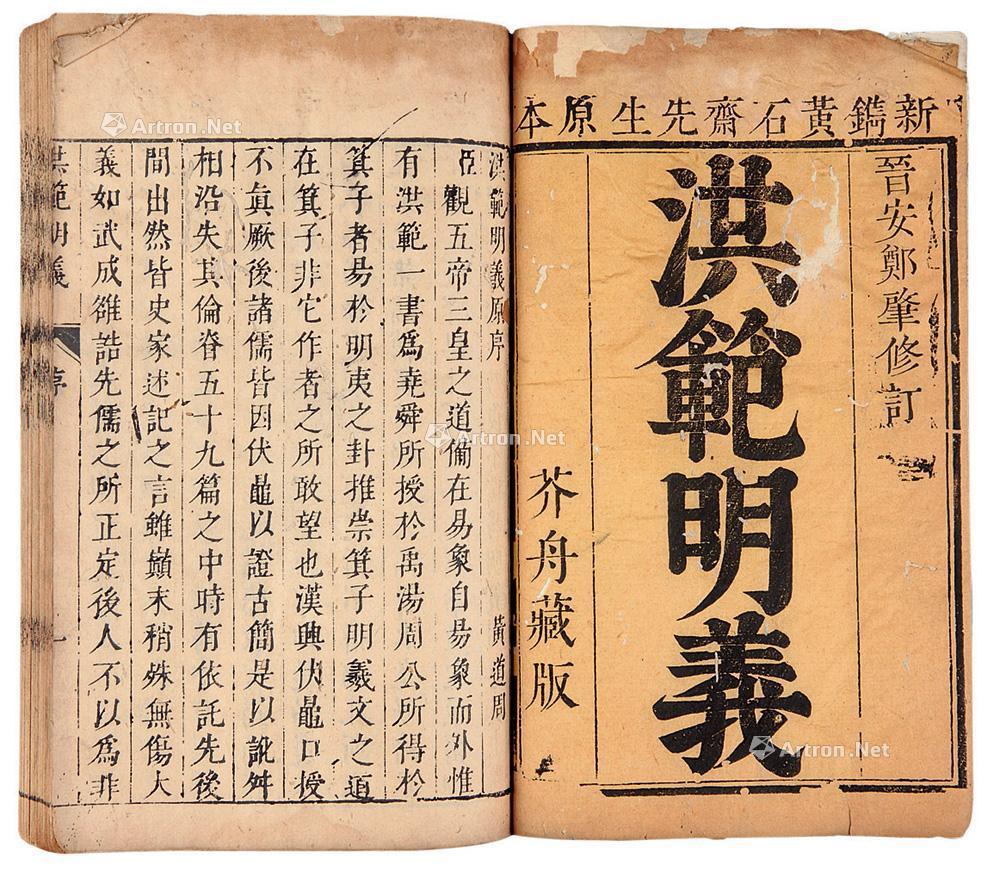 新鐫黃石齋先生原本
晉安鄭肇修訂
洪範明義
芥舟藏版
洪範明義原序 黃道周
觀五帝三皇之道俻在易象自易象而外惟
有洪範一書爲堯舜所授於禹湯周公所得於
箕子者易於明夷之卦推崇箕子明羲文之道
在箕子非它作者之所敢望也漢興伏鼂口授
不眞厥後諸儒皆因伏鼂以證古簡是以訛舛
相沿失其倫脊五十九篇之中時有依託先後
間出然皆史家述記之言雖巔末稍殊無傷大
義如武成雒誥先儒之所正定後人不以爲非
洪範明義 序 一
Artron.Net
Artron.Net
Artron.Net
Artron.Net
Artron.Net